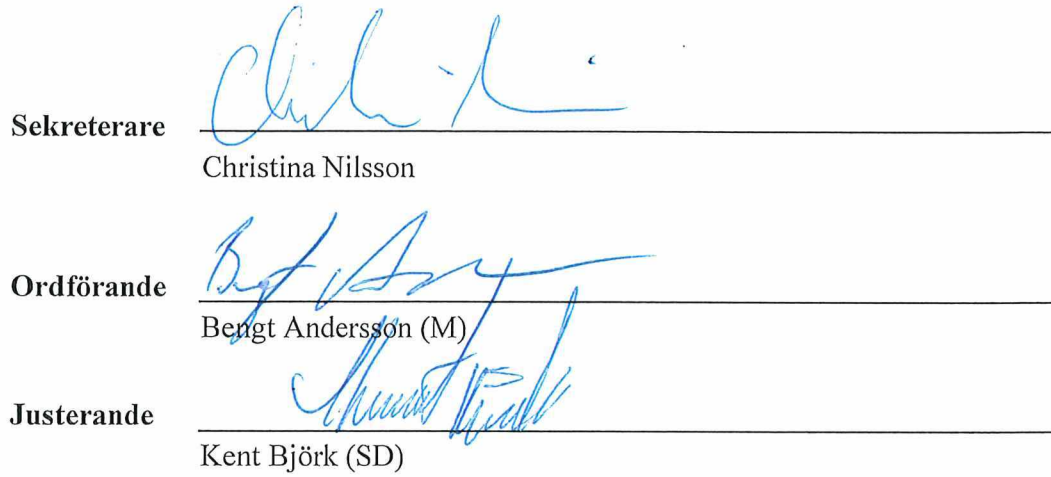 Sekreterare
Christina Nilsson
Ordförande
Bengt Andersson (M)
Justerande
Kent Björk (SD)